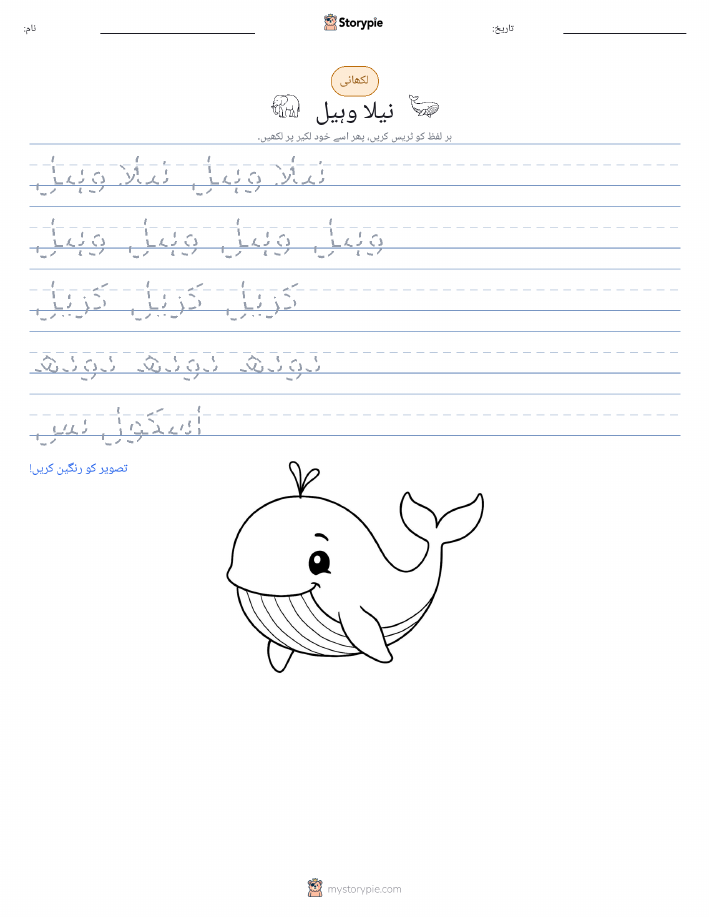 نام:
Storypie
تاریخ:
لکھانی
نیلا وہیل
ہر لفظ کو ٹریس کریں، پھر اسے خود لکیر پر لکھیں۔
نیلا وہیل نیلا وہیل
وہیل وہیل وہیل وہیل
کزیل کزیل کزیل
اسکول بس
تصویر کو رنگین کریں!
mystorypie.com